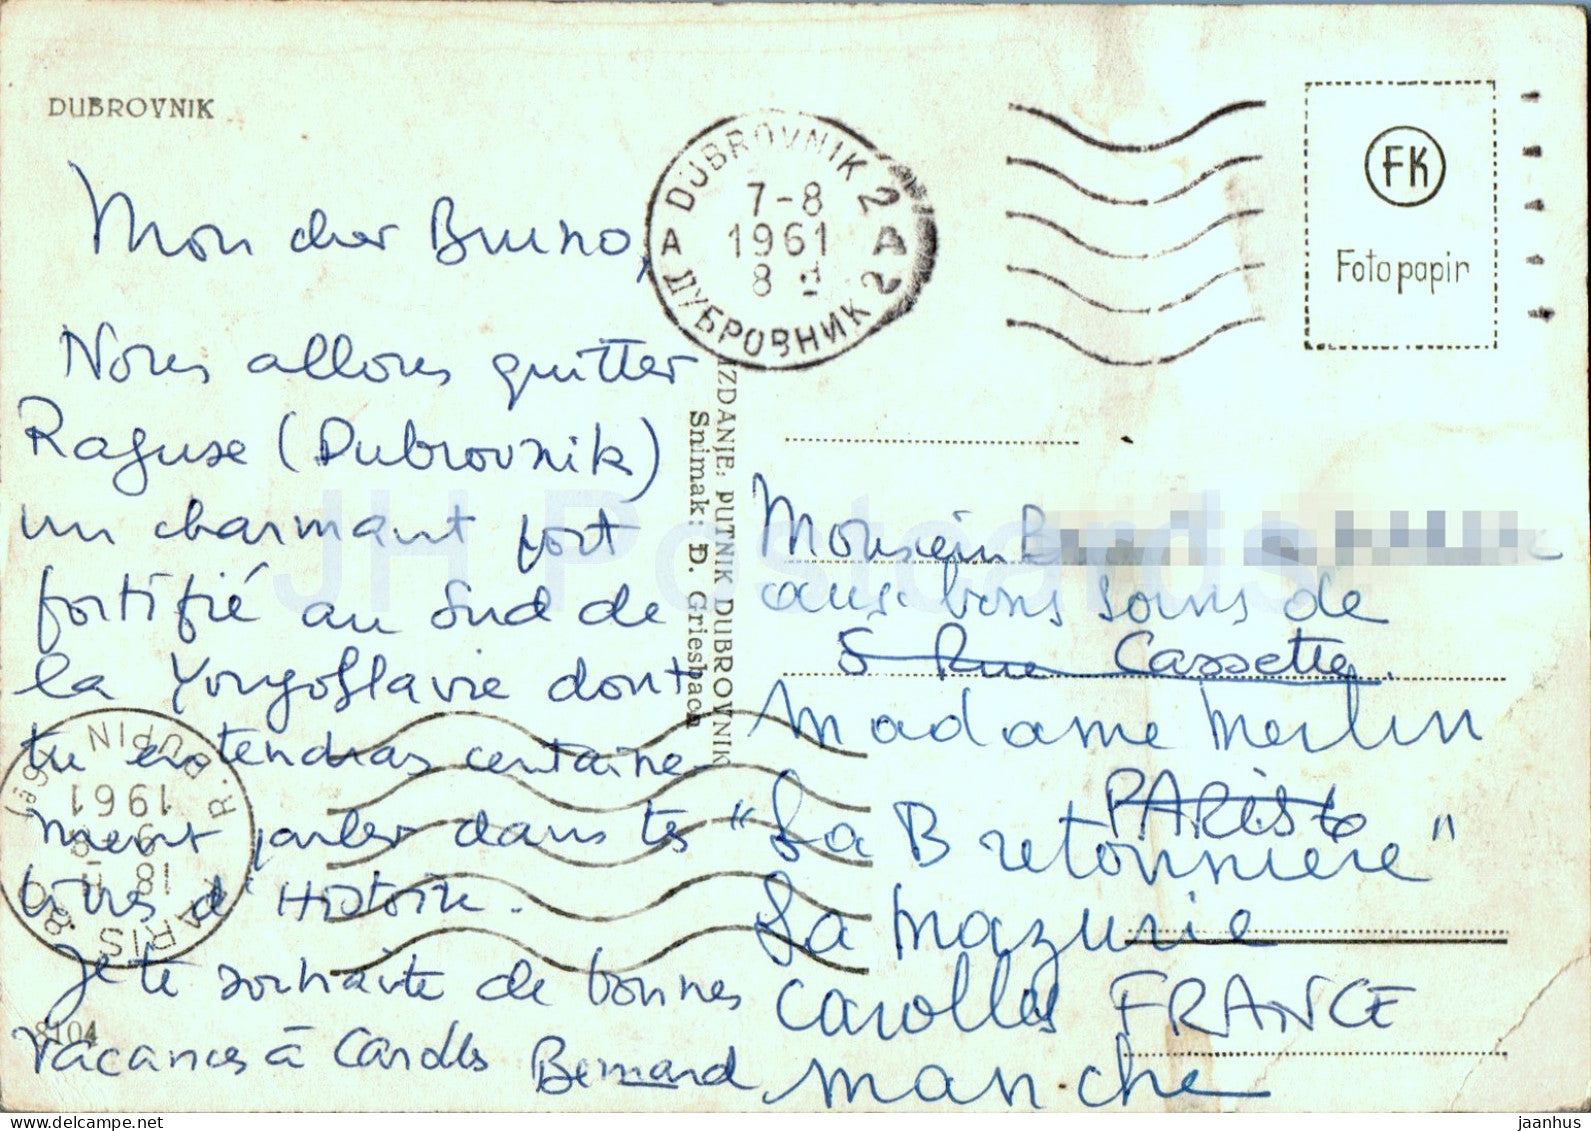 DUBROVNIK
Mon cher Bruno,
Nous allons quitter
Raguse (Dubrovnik)
un charmant fort
fortifié au Sud de
la Yougoslavie dont
tu entendras certaine-
ment parler dans tes
livres d'Histoire.
Je te souhaite de bonnes
vacances à Carolles Bernard
8104
DUBROVNIK 2
7-8
1961
8
A A
ДУБРОВНИК 2
IZDANJE: PUTNIK DUBROVNIK
Snimak: Đ. Griesbach
FK
Foto papir
Monsieur B
aux bons soins de
5 Rue Cassette
Madame Merlin
PARIS 6
"La Bretonnière"
La Mazurie
Carolles FRANCE
Manche
R. DUPIN
PARIS
1961
JH Postcards
delcampe.net
jaanhus